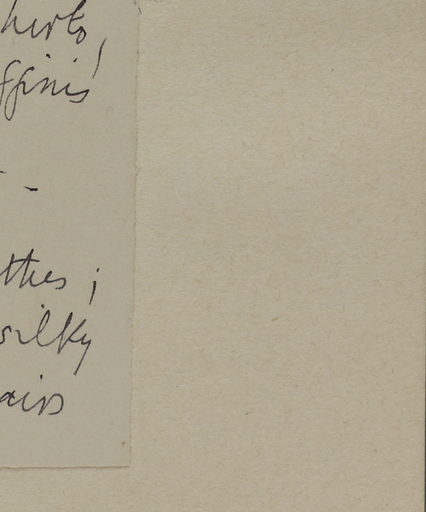 hirto,
ffinis
-
thes ;
silky
airs